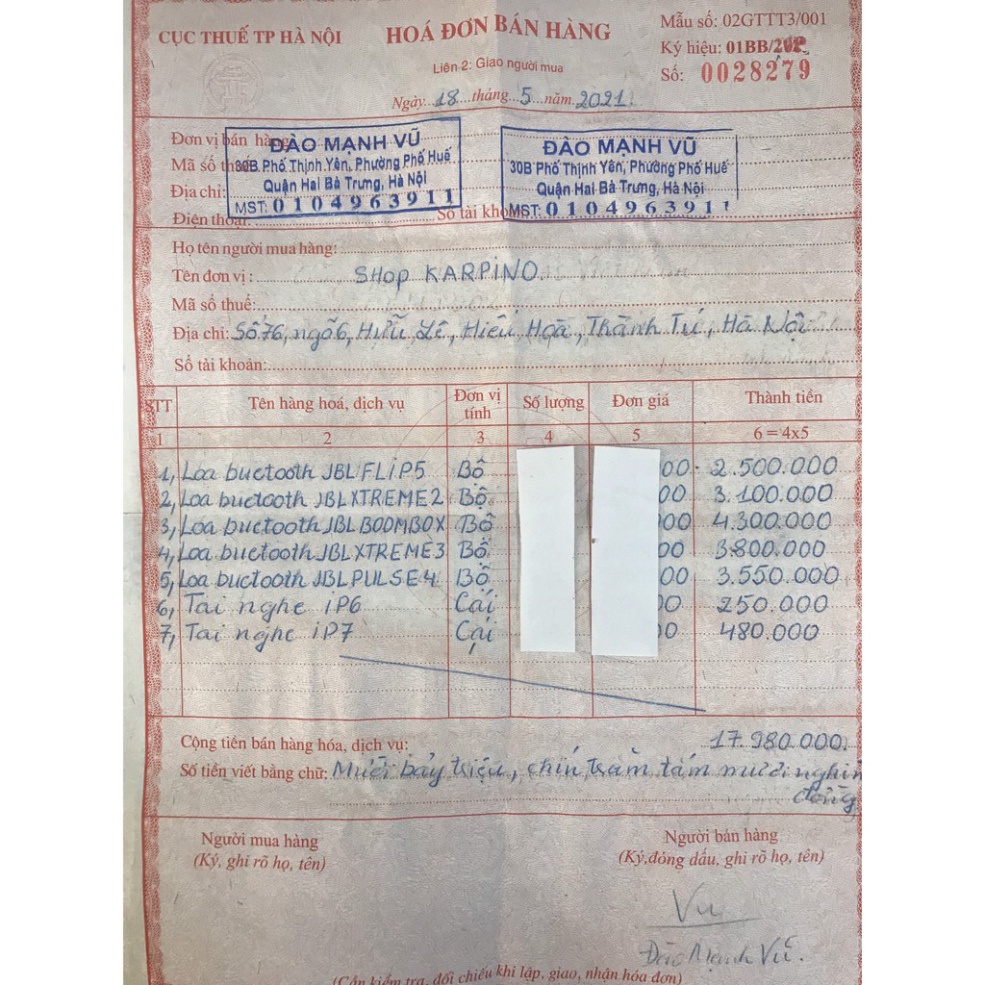 CỤC THUẾ TP HÀ NỘI
HOÁ ĐƠN BÁN HÀNG
Liên 2: Giao người mua
Ngày 18 tháng 5 năm 2021
Mẫu số: 02GTTT3/001
Ký hiệu: 01BB/
Số: 0028279
Đơn vị bán hàng
Mã số thuế
Địa chỉ:
Điện thoại:
Số tài khoản
ĐÀO MẠNH VŨ
30B Phố Thịnh Yên, Phường Phố Huế
Quận Hai Bà Trưng, Hà Nội
MST: 0104963911
ĐÀO MẠNH VŨ
30B Phố Thịnh Yên, Phường Phố Huế
Quận Hai Bà Trưng, Hà Nội
MST: 0104963911
Họ tên người mua hàng:
Tên đơn vị: SHOP KARPINO
Mã số thuế:
Địa chỉ: Số 76, ngõ 6, Hữu Lê, Hữu Hoà, Thanh Trì, Hà Nội
Số tài khoản:
STT Tên hàng hoá, dịch vụ Đơn vị tính Số lượng Đơn giá Thành tiền
1 2 3 4 5 6 = 4x5
1, Loa buctooth JBL FLIP5 Bộ 00 2.500.000
2, Loa buctooth JBL XTREME2 Bộ 00 3.100.000
3, Loa buctooth JBL BOOMBOX Bộ 00 4.300.000
4, Loa buctooth JBL XTREME3 Bộ 00 3.800.000
5, Loa buctooth JBL PULSE4 Bộ 00 3.550.000
6, Tai nghe iP6 Cái 0 250.000
7, Tai nghe iP7 Cái 0 480.000
Cộng tiền bán hàng hóa, dịch vụ: 17.980.000
Số tiền viết bằng chữ: Mười bảy triệu, chín trăm tám mươi nghìn
đồng
Người mua hàng
(Ký, ghi rõ họ, tên)
Người bán hàng
(Ký,đóng dấu, ghi rõ họ, tên)
Vu
Đào Mạnh Vũ.
(Cần kiểm tra, đối chiếu khi lập, giao, nhận hóa đơn)